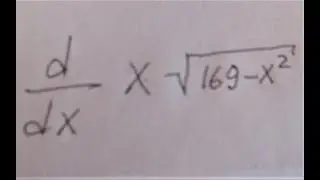 d/dx x √(169-x²)